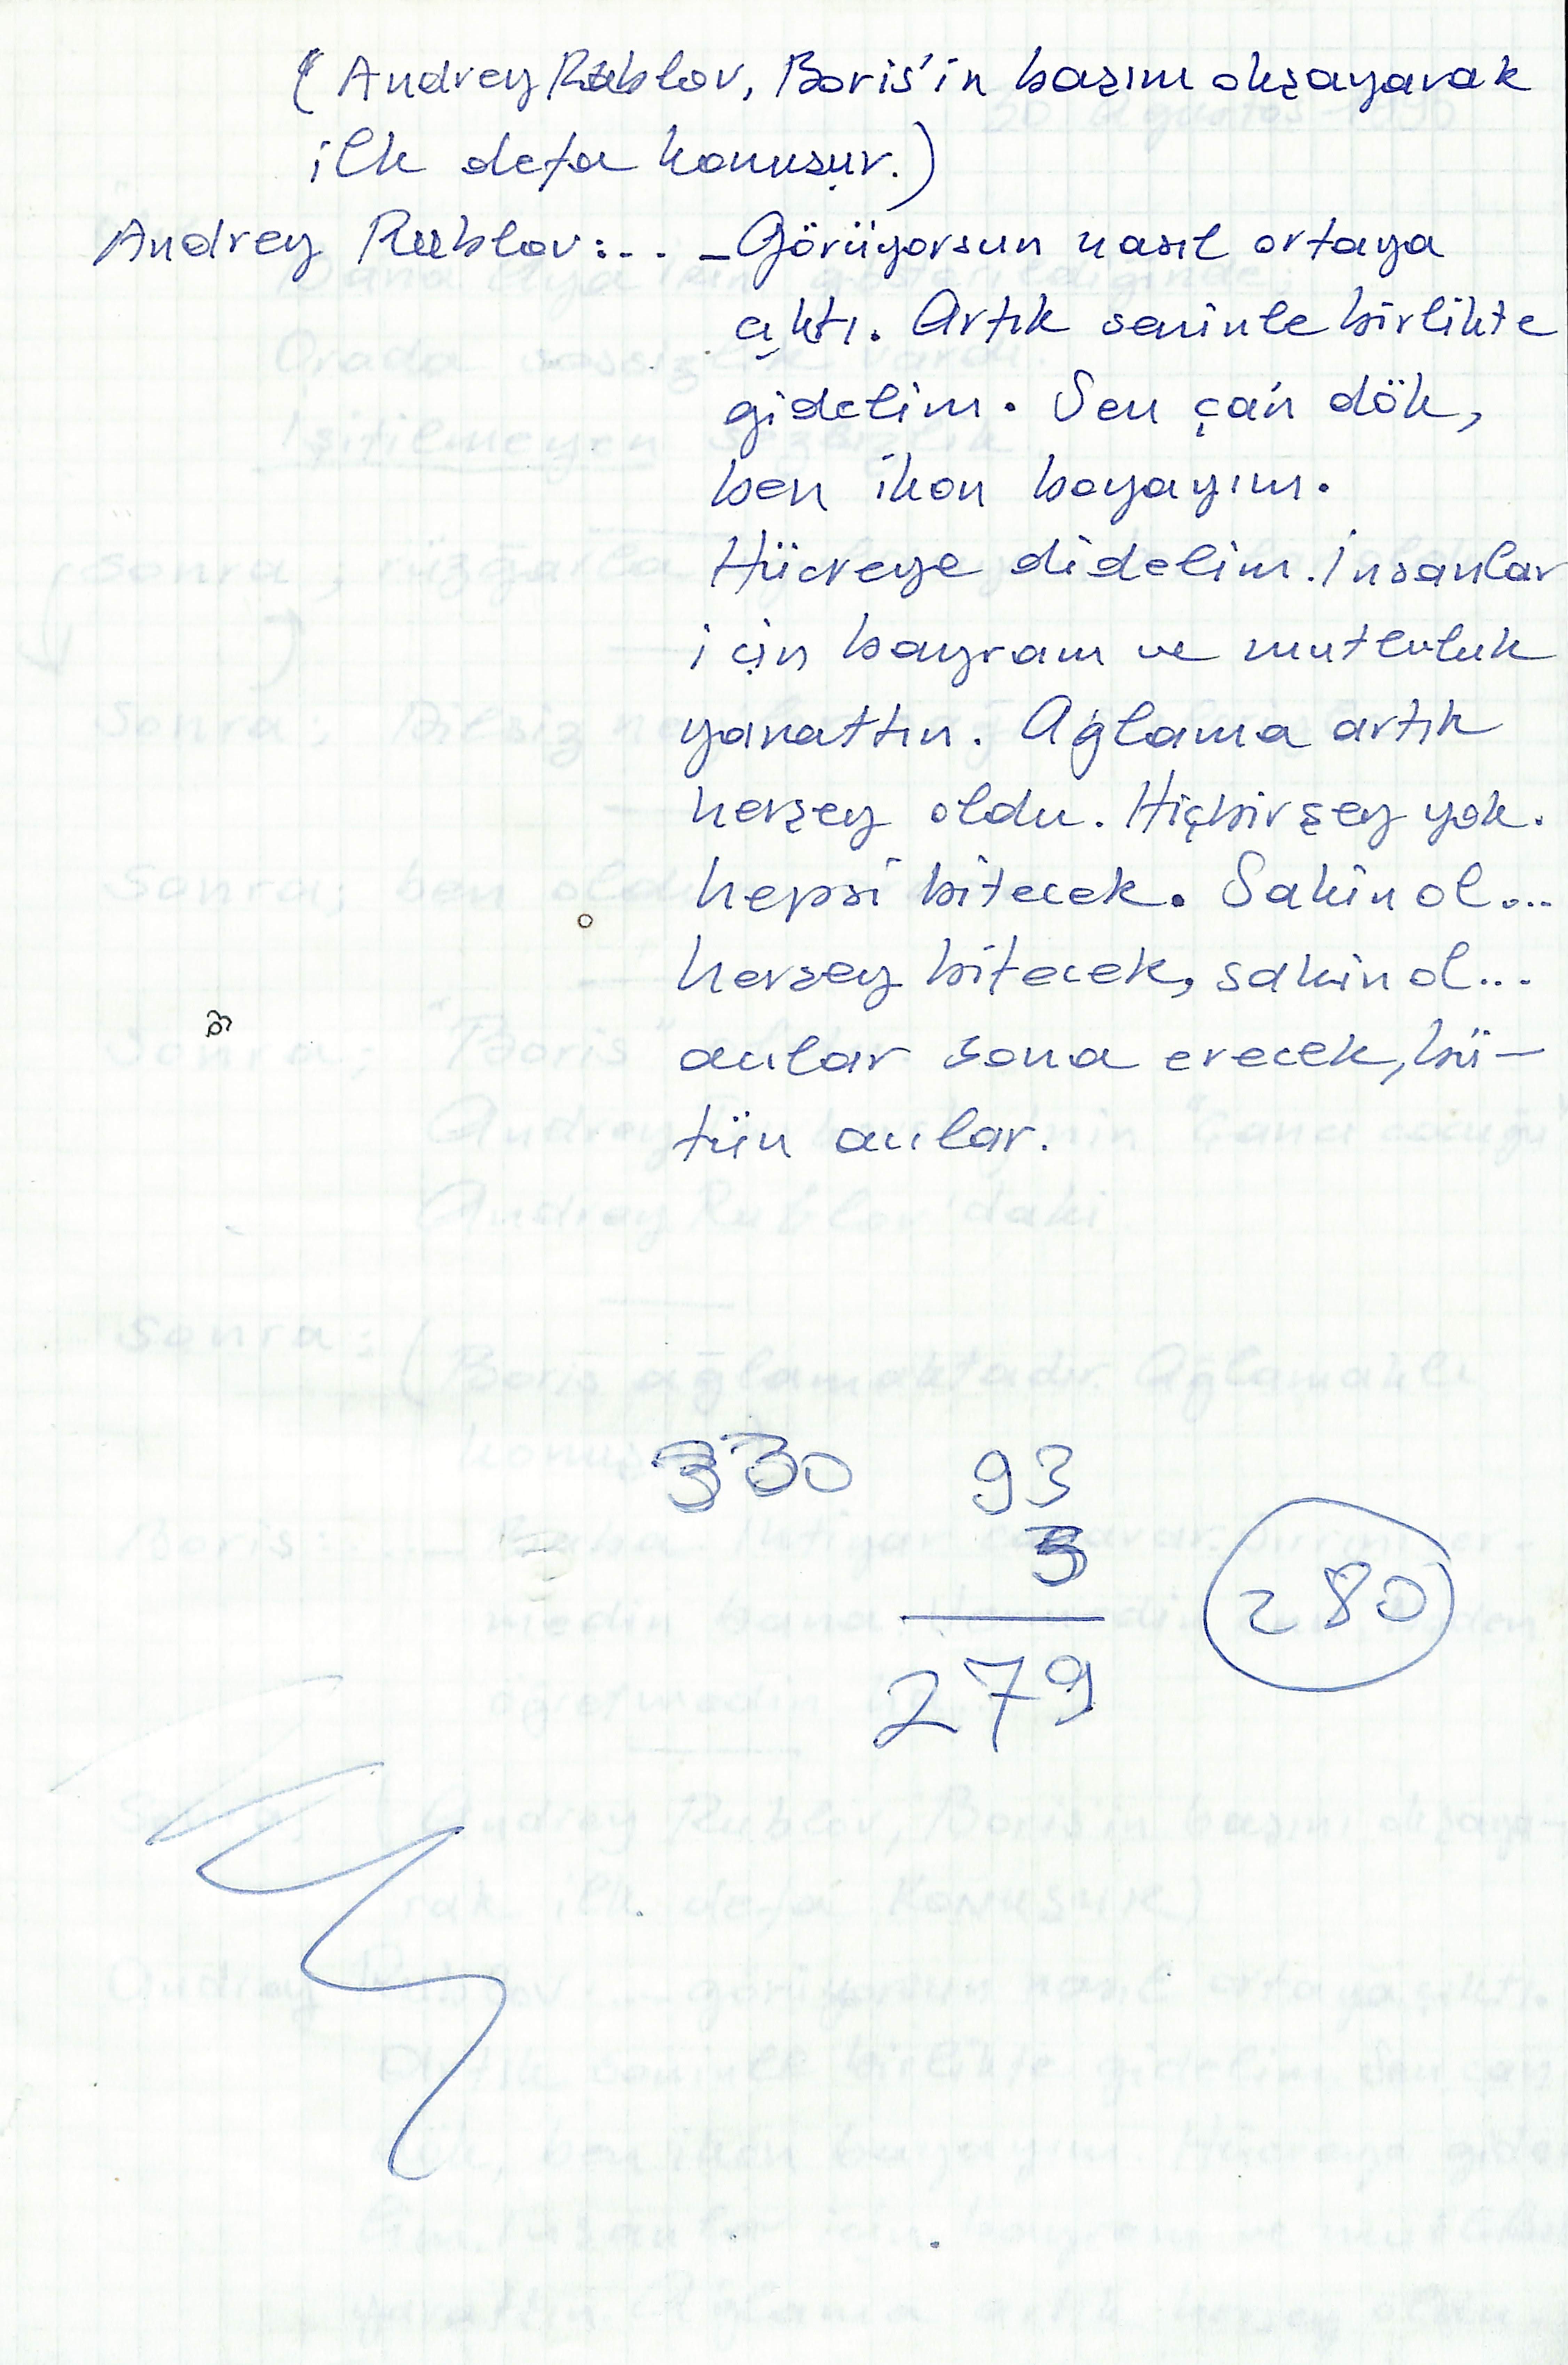 ( Andrey Rublov, Boris'in başını okşayarak
ilk defa konuşur.)
Andrey Rublov:... _Görüyorsun nasıl ortaya
çıktı. Artık seninle birlikte
gidelim. Sen çan dök,
ben ikon boyayım.
Hücreye didelim. İnsanlar
için bayram ve mutluluk
yarattın. Ağlama artık
herşey oldu. Hiçbirşey yok.
hepsi bitecek. Sakin ol...
herşey bitecek, sakin ol...
acılar sona erecek, bü-
tün acılar.
330 93
3
279
280